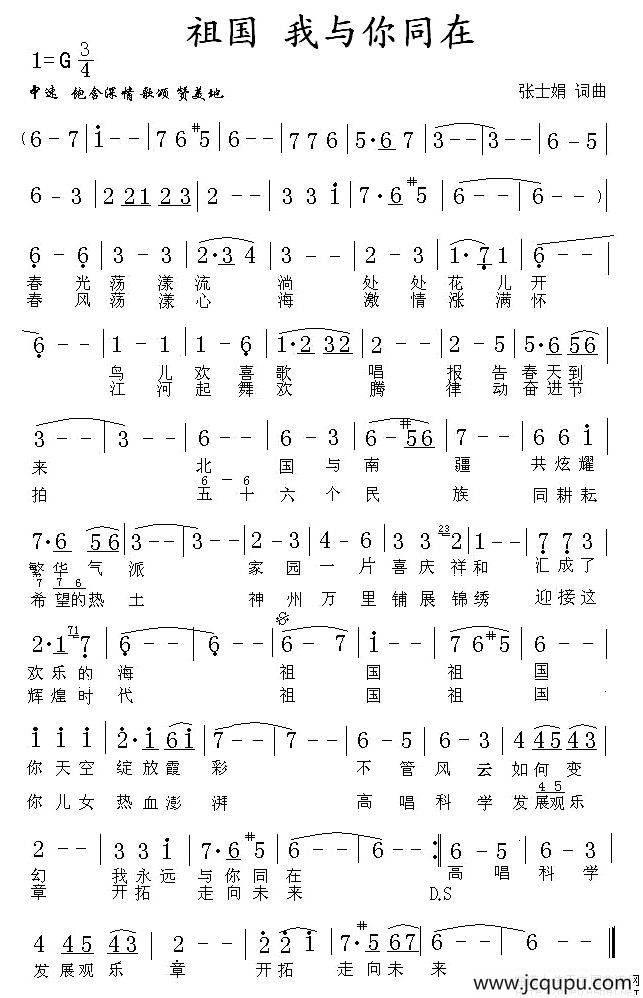 祖国 我与你同在
1=G 3/4
中速 饱含深情 歌颂 赞美地
张士娟 词曲
（6 - 7 | i - - | 7 6 #5 | 6 - - | 7 7 6 | 5·6 7 | 3 - - | 3 - - | 6 - 5 |
6 - 3 | 2 21 23 | 2 - - | 3 3 i | 7·6 #5 | 6 - - | 6 - - ）|
6 - 6 | 3 - 3 | 2·3 4 | 3 - - | 2 - 3 | 1·7 1 | 6 - - |
春 光 荡 漾 流 淌 处 处 花 儿 开
春 风 荡 漾 心 海 激 情 涨 满 怀
6 - - | 1 - 1 | 1 - 6 | 1·2 32 | 2 - - | 2 - 5 | 5·6 56 |
鸟 儿 欢 喜 歌 唱 报 告 春 天 到
江 河 起 舞 欢 腾 律 动 奋 进 节
3 - - | 3 - - | 6 - - | 6 - 3 | 6 - #56 | 7 - - | 6 6 i |
来 北 国 与 南 疆 共 炫 耀
6 - 6
拍 五 十 六 个 民 族 同 耕 耘
7·6 56 | 3 - - | 3 - - | 2 - 3 | 4 - 6 | 3 3 23 2 | 7 7 3 |
繁 华 气 派 家 园 一 片 喜 庆 祥 和 汇 成 了
7 7 6
希 望 的 热 土 神 州 万 里 铺 展 锦 绣 迎 接 这
2·1 71 7 | 6 - - | 6 - - | 6 - 7 | i - - | 7 6 #5 | 6 - - |
欢 乐 的 海 祖 国 祖 国
辉 煌 时 代 祖 国 祖 国
i i i | 2·i 6i | 7 - - | 7 - - | 6 - 5 | 6 - 3 | 4 45 43 |
你 天 空 绽 放 霞 彩 不 管 风 云 如 何 变
4 5
你 儿 女 热 血 澎 湃 高 唱 科 学 发 展 观 乐
2 - - | 3 3 i | 7·6 #5 | 6 - - | 6 - - :| 6 - 5 | 6 - 3 |
幻 我 永 远 与 你 同 在 高 唱 科 学
章 开 拓 走 向 未 来 D.S
4 45 43 | 2 - - | 2 3 i | 7·#5 67 | 6 - - | 6 - -
发 展 观 乐 章 开 拓 走 向 未 来
www.jcqupu.com